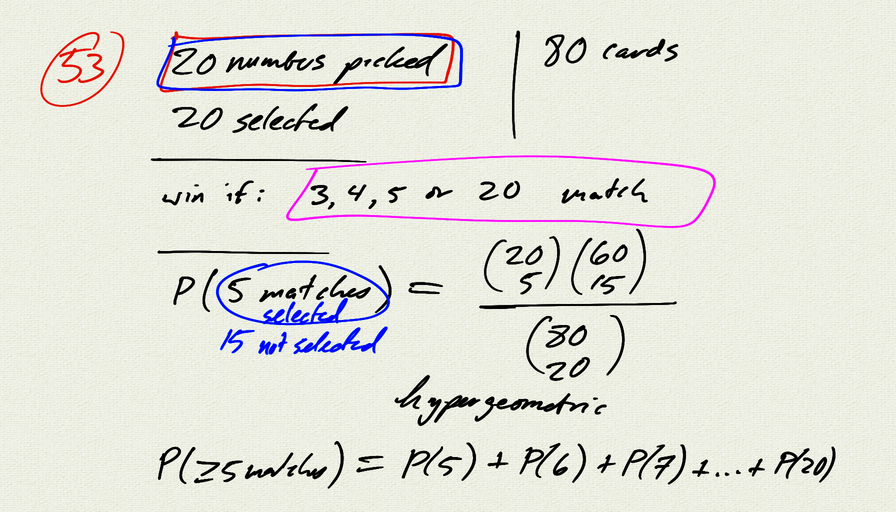 53
20 numbers picked
80 cards
20 selected
win if: 3, 4, 5 or 20 match
P(5 matches) = (20 5)(60 15) / (80 20)
selected
15 not selected
hypergeometric
P(≥5 matches) = P(5) + P(6) + P(7) + ... + P(20)